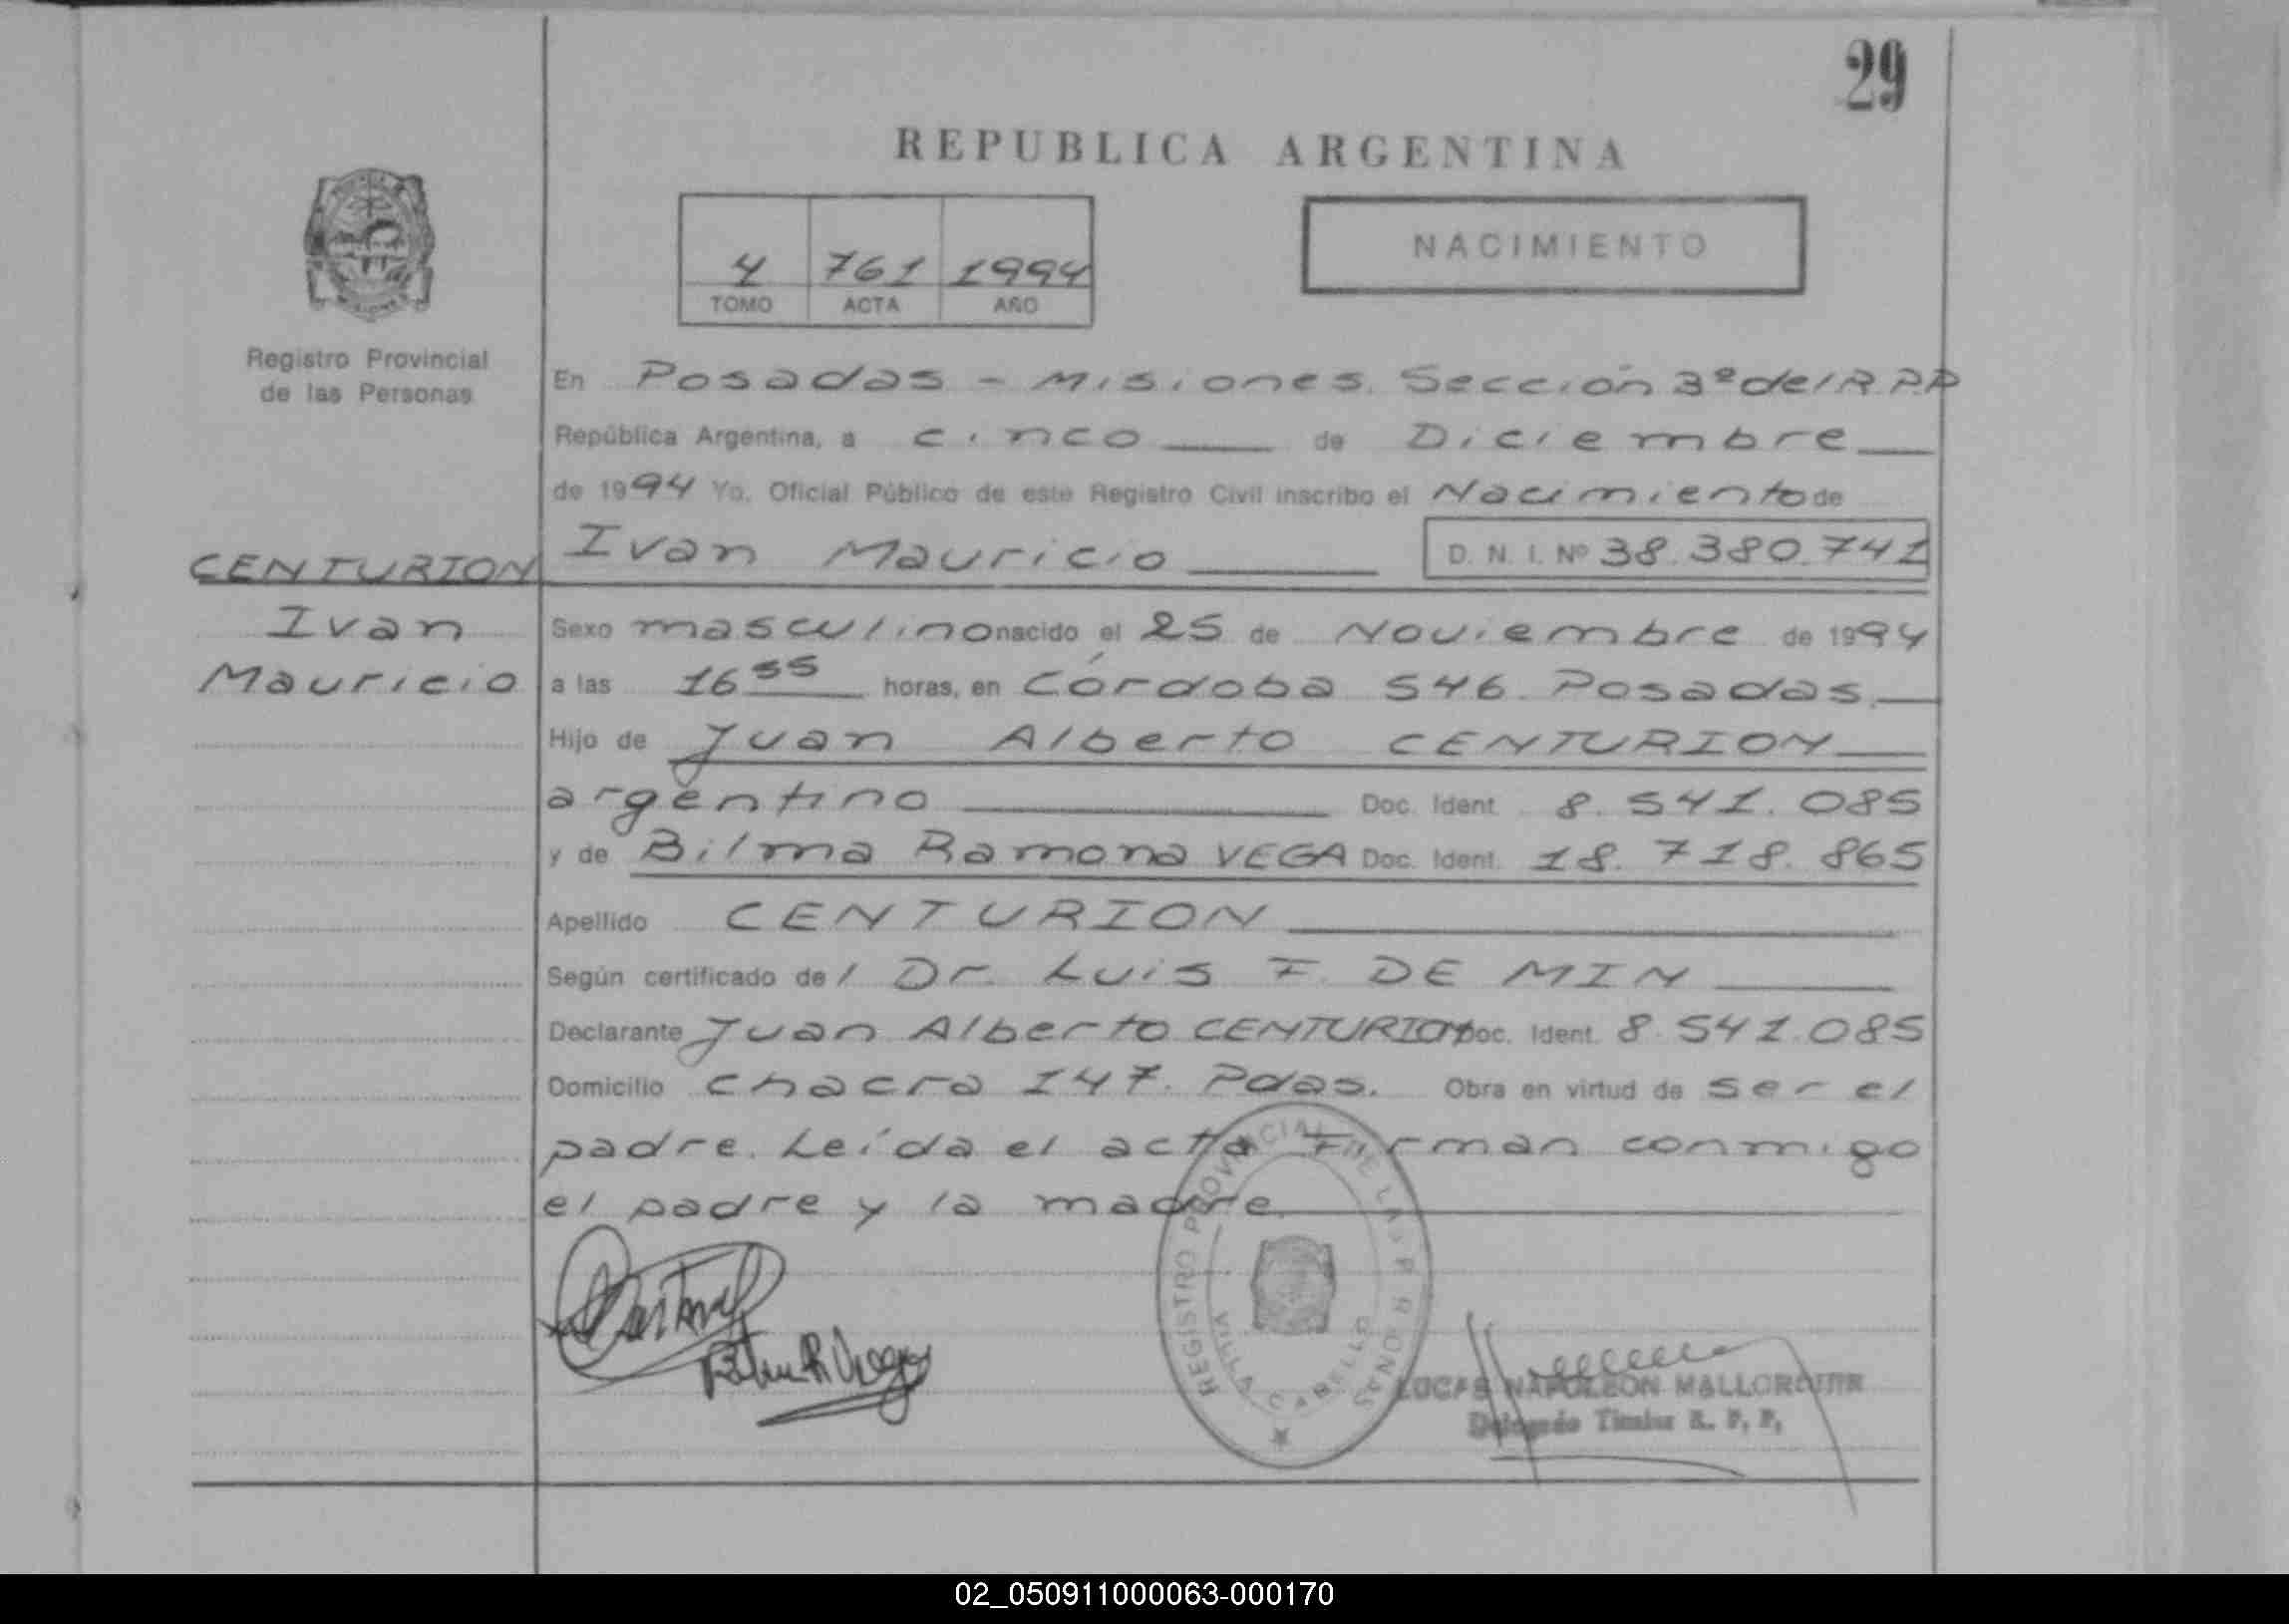 29
REPUBLICA ARGENTINA
4 761 1994
TOMO ACTA AÑO
NACIMIENTO
Registro Provincial
de las Personas
En Posadas - Misiones. Sección 3º del R.P.P
República Argentina, a cinco de Diciembre
de 1994 Yo, Oficial Público de este Registro Civil inscribo el Nacimiento de
Ivan Mauricio D. N. I. Nº 38.380.741
CENTURION
Ivan
Mauricio
Sexo masculino nacido el 25 de Noviembre de 1994
a las 16 55 horas, en Córdoba 546. Posadas.
Hijo de Juan Alberto CENTURION
argentino Doc. Ident. 8.541.085
y de Bilma Ramona VEGA Doc. Ident. 18.718.865
Apellido CENTURION
Según certificado del Dr. Luis F. DE MIN
Declarante Juan Alberto CENTURION Doc. Ident. 8.541.085
Domicilio chacra 147. Pdas. Obra en virtud de ser el
padre. Leída el acta Firman conmigo
el padre y la madre.
REGISTRO PROVINCIAL DE LAS PERSONAS
VILLA CABELLO
LUCAS NAPOLEON
Delegado Titular R. P. P.
02_050911000063-000170